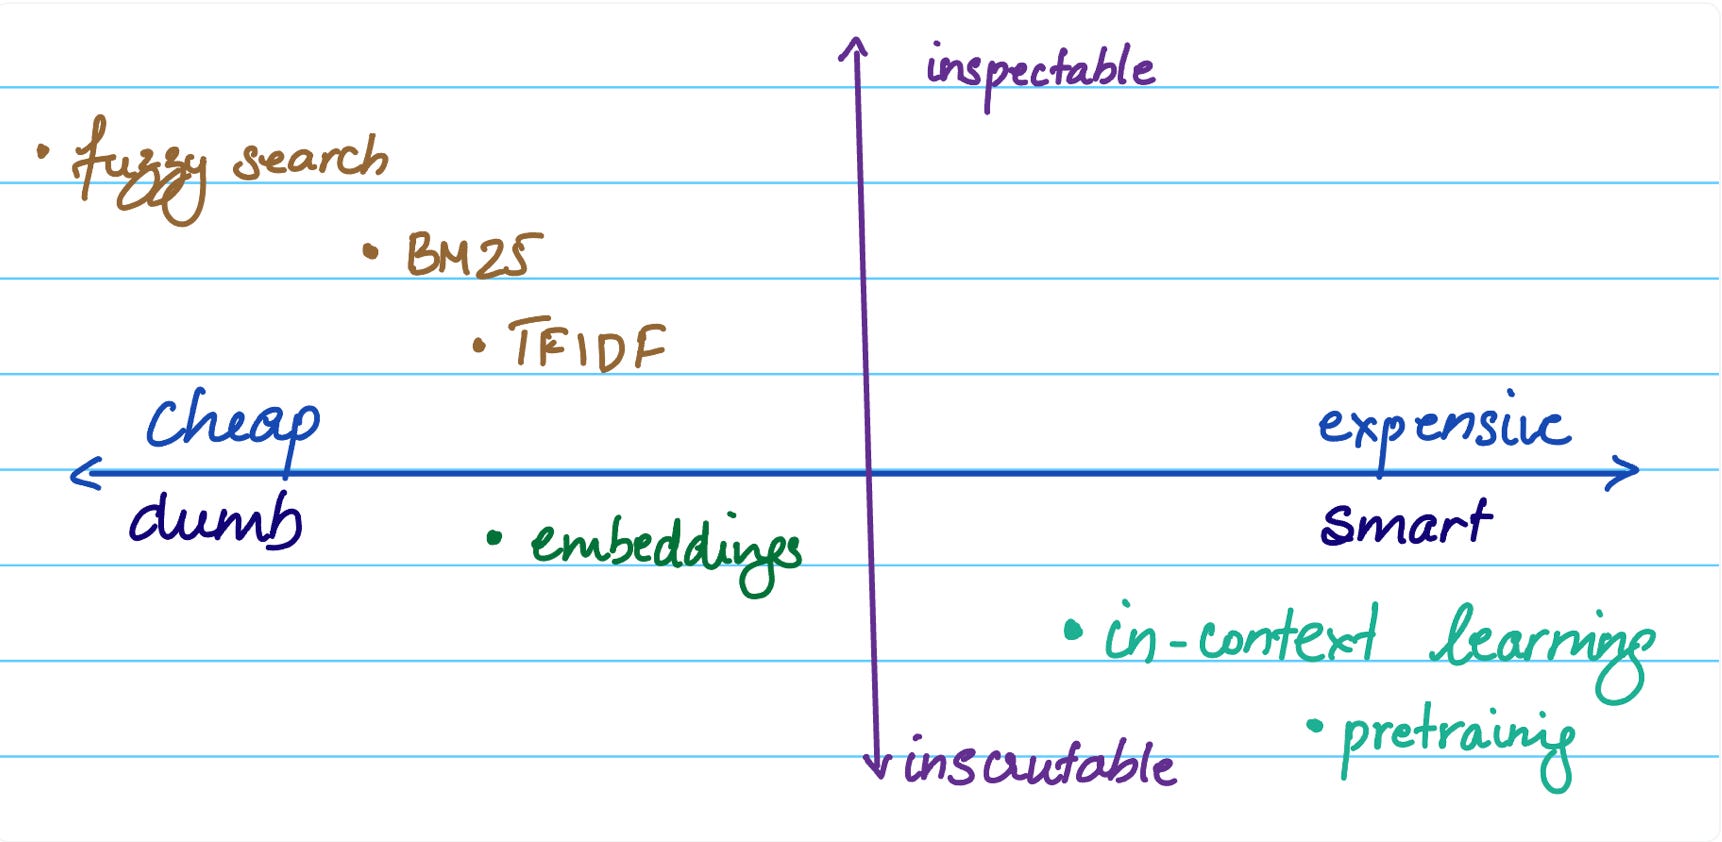 inspectable
• fuzzy search
• BM25
• TFIDF
cheap
expensive
dumb
smart
• embeddings
• in-context learning
• pretrainig
inscrutable